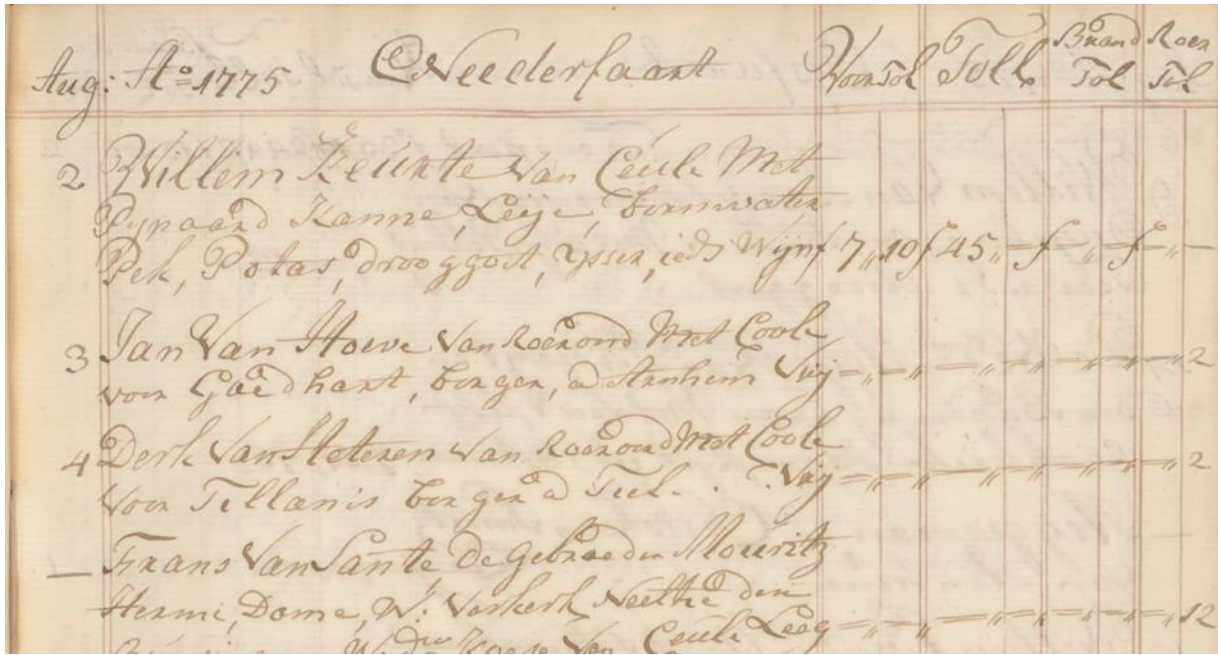 Aug: Aº 1775 Neederfaart Voor Tol Toll Brand Tol Roer Tol
2 Willem Keunte Van Ceule Met
Pypaard Kanne, Leye, bornwater
Pek, Potas, drooggost, ysser, ieds Wijn f 7 „ 10 f 45 „ — f — „ — f — „ —
3 Jan Van Hoeve Van Roeroord Met Coole
voor Goedhart, borger, a Arnhem Vrij — „ — — „ — — „ — — „ 2
4 Derk Van Heteren Van Roeroord Met Coole
Voor Tellanis borger a Tiel . . Vrij — „ — — „ — — „ — — „ 2
— Frans Van Sante De Gebroeders Mouritz
Herme, Dome, W: Verkerk Neeltie den
Wed: Van Ceule Leeg — „ — — „ — — „ — — „ 12